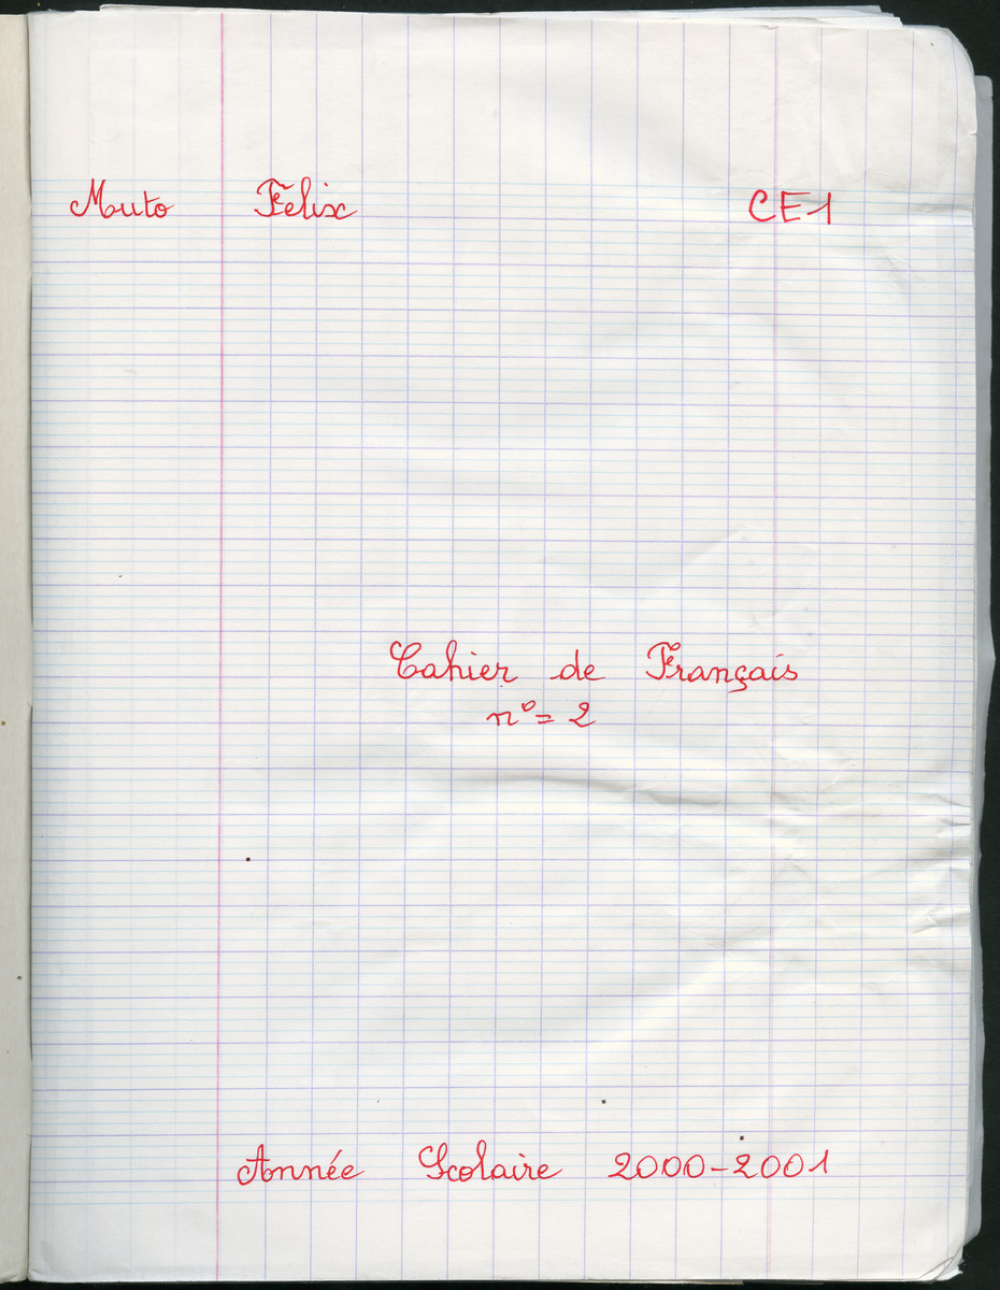 Muto Félix CE1
Cahier de Français
n° = 2
Année Scolaire 2000-2001